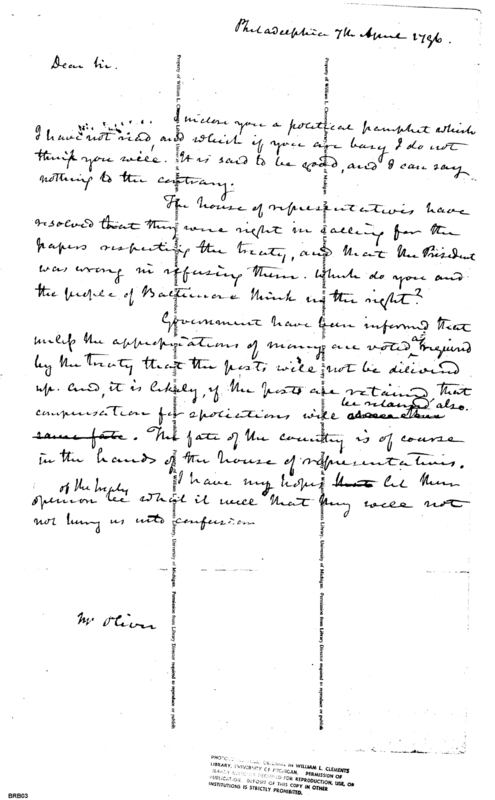 Philadelphia 7th April 1796.
Dear Sir.
inclose you a political pamphlet which
I have not read, and which if you are busy I do not
think you will. It is said to be good, and I can say
nothing to the contrary.
The house of representatives have
resolved that they were right in calling for the
papers respecting the treaty, and that the President
was wrong in refusing them. Which do you and
the people of Baltimore think in the right?
Government have been informed that
unless the appropriations of money are voted as required
by the treaty that the posts will not be delivered
up. And, it is likely, if the posts are retained, that
compensation for spoliations will be retained also.
same fate. The fate of the country is of course
in the hands of the house of representatives.
I have my hopes let their
opinion of the treaty be what it will that they will not
not hurry us into confusion
Mr Oliver
Property of William L. Clements Library, University of Michigan. Permission from Library Director required to reproduce or publish
Property of William L. Clements Library, University of Michigan. Permission from Library Director required to reproduce or publish
ORIGINAL IN WILLIAM L. CLEMENTS
LIBRARY, UNIVERSITY OF MICHIGAN. PERMISSION OF
REQUIRED FOR REPRODUCTION, USE, OR
PUBLICATION. DEPOSIT OF THIS COPY IN OTHER
INSTITUTIONS IS STRICTLY PROHIBITED.
BRB03